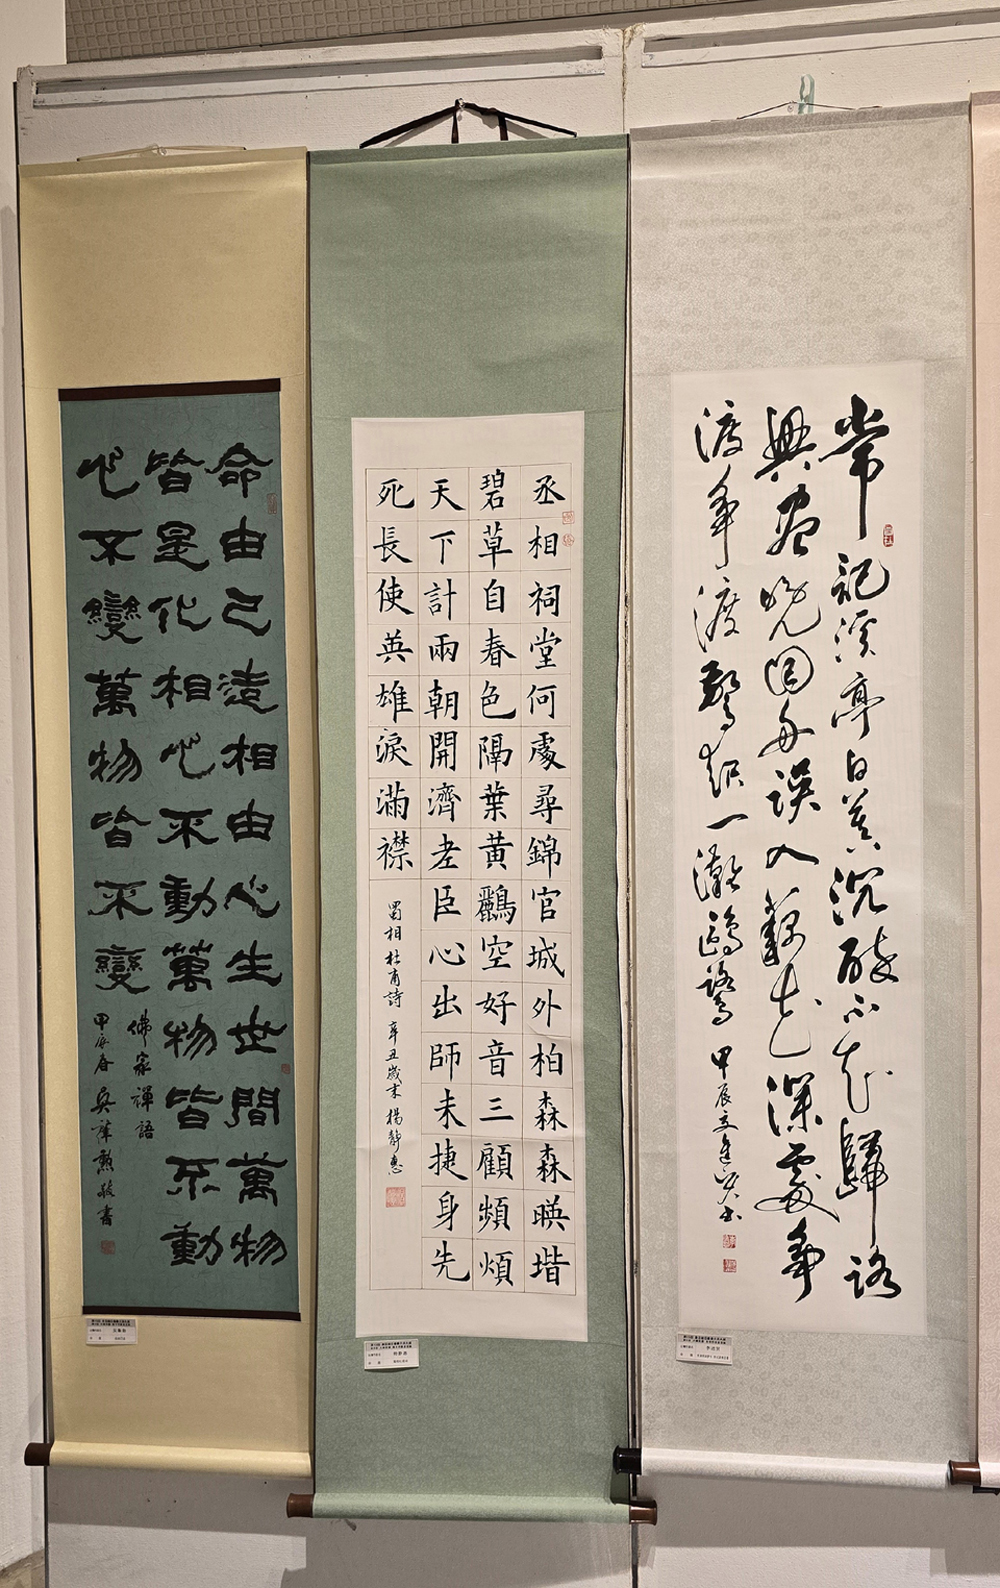 常記溪亭日暮沉醉不知歸路
興盡晚回舟誤入藕花深處爭
渡爭渡驚起一灘鷗鷺 甲辰
丞相祠堂何處尋錦官城外柏森森暎堦
碧草自春色隔葉黃鸝空好音三顧頻煩
天下計兩朝開濟老臣心出師未捷身先
死長使英雄淚滿襟
蜀相 杜甫詩 辛丑歲末 楊靜惠
命由己造相由心生世間萬物
皆是化相心不動萬物皆不動
心不變萬物皆不變
佛家禪語
甲辰春 吳肇勲敬書